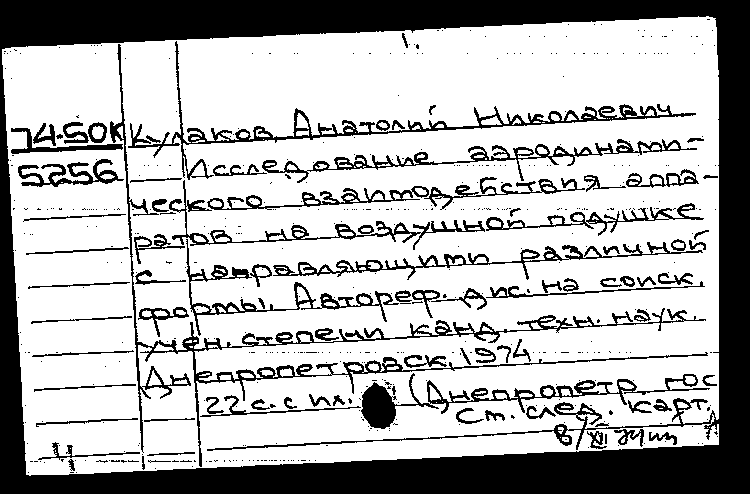 1.
74-50К Кулаков, Анатолий Николаевич
5256 Исследование аэродинами-
ческого взаимодействия аппа-
ратов на воздушной подушке
с направляющими различной
формы. Автореф. дис. на соиск.
учен. степени канд. техн. наук.
Днепропетровск, 1974.
22 с. с ил. (Днепропетр. гос
См. след. карт.
4